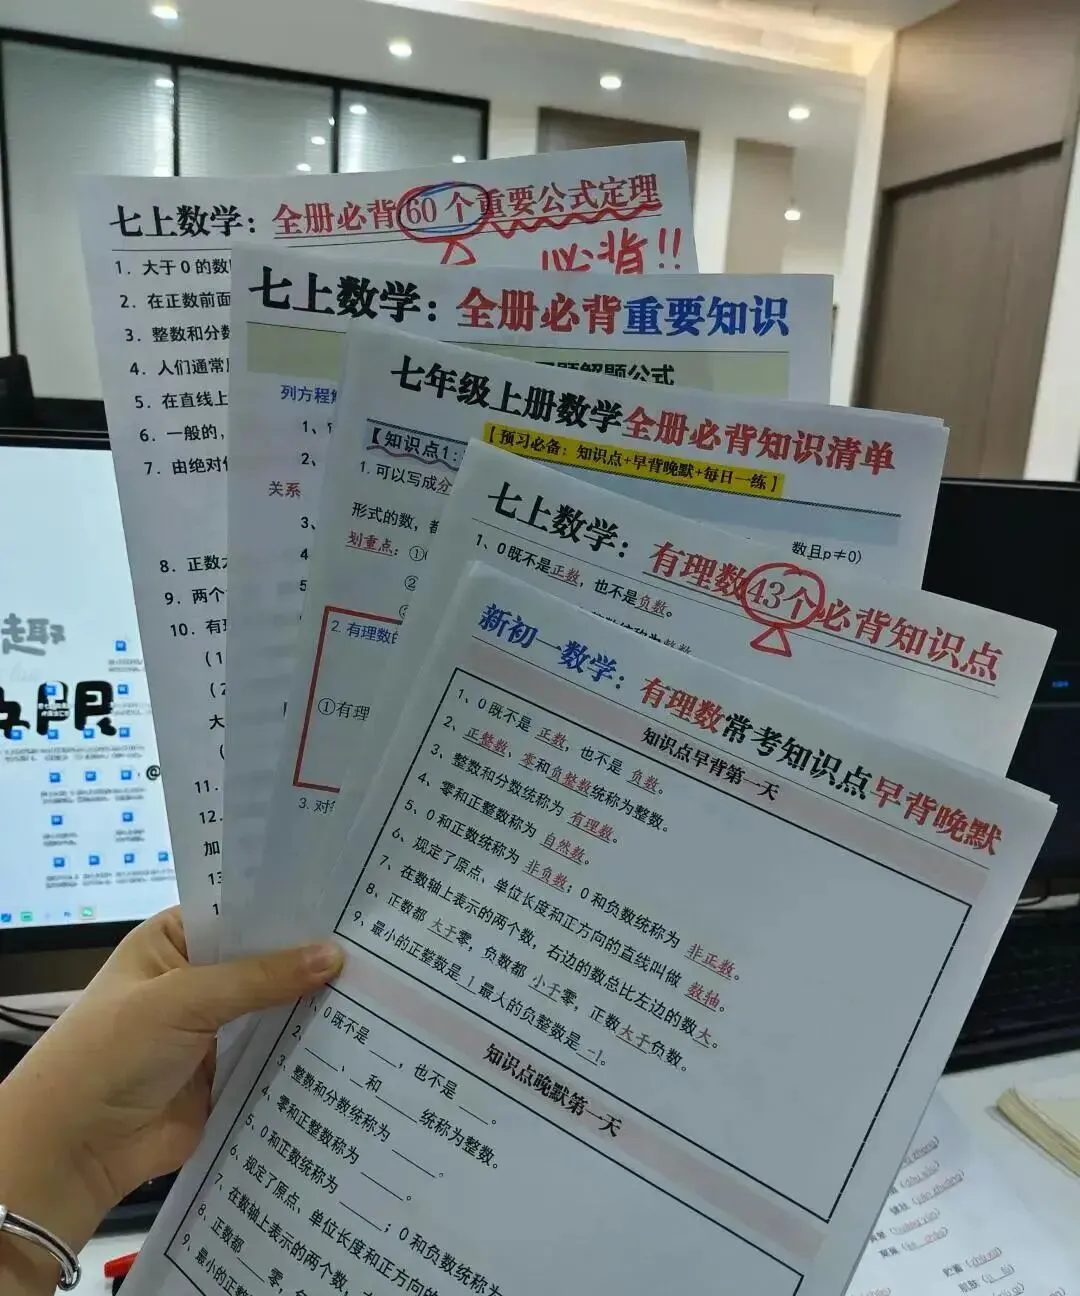 七上数学：全册必背60个重要公式定理
必背!!
1．大于0的数
2．在正数前面
3．整数和分数
4．人们通常
5．在直线上
6．一般的，
7．由绝对
8．正数大
9．两个
10．有
(1
(2
大
(
11．
12．
加
13
1
七上数学：全册必背重要知识
题解题公式
列方程
1、
2、
关系
3、
4
5
七年级上册数学全册必背知识清单
【预习必备：知识点+早背晚默+每日一练】
【知识点1：
1. 可以写成分
数且p≠0)
形式的数，都
划重点：①
②
2. 有理数的
①有理
3. 对
七上数学：有理数43个必背知识点
1、0既不是正数，也不是负数。
统称为整数
新初一数学：有理数常考知识点早背晚默
知识点早背第一天
1、0既不是 正数，也不是 负数。
2、正整数、零和负整数统称为整数。
3、整数和分数统称为 有理数。
4、零和正整数称为 自然数。
5、0和正数统称为 非负数；0和负数统称为 非正数。
6、规定了原点、单位长度和正方向的直线叫做 数轴。
7、在数轴上表示的两个数，右边的数总比左边的数大。
8、正数都 大于零，负数都 小于零，正数大于负数。
9、最小的正整数是 1 最大的负整数是 -1。
知识点晚默第一天
1、0既不是 ___，也不是 ___。
2、____、_和____统称为整数。
3、整数和分数统称为 _____。
4、零和正整数称为 _____。
5、0和正数统称为 _____；0和负数统称为
6、规定了原点、单位长度和正方向的
7、在数轴上表示的两个数，
8、正数都 ____零，
9、最小的正
趣
限
@
贮蓄
肌肤